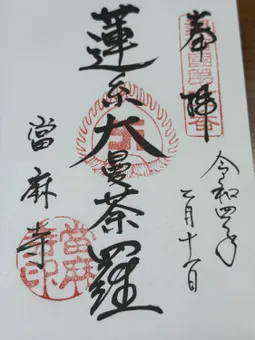 奉拝
蓮糸大曼荼羅
當麻寺
令和四年
二月十一日